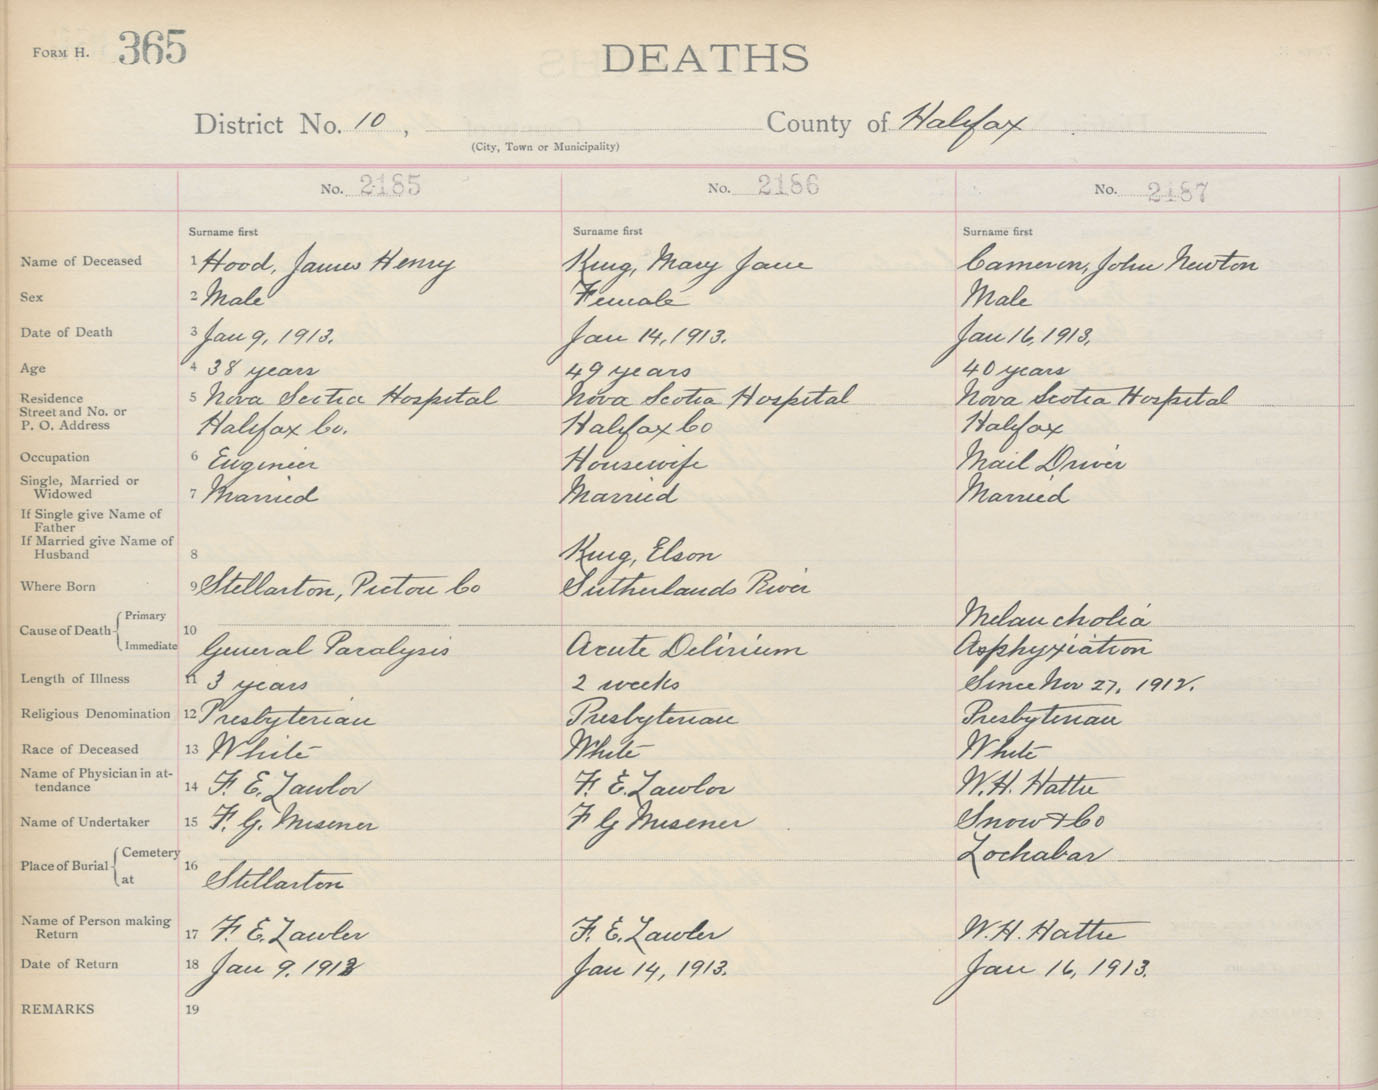 FORM H. 365 DEATHS
District No. 10, County of Halifax
(City, Town or Municipality)
No. 2185 No. 2186 No. 2187
Surname first Surname first Surname first
Name of Deceased 1 Hood, James Henry King, Mary Jane Cameron, John Newton
Sex 2 Male Female Male
Date of Death 3 Jan 9, 1913. Jan 14, 1913. Jan 16, 1913.
Age 4 38 years 49 years 40 years
Residence 5 Nova Scotia Hospital Nova Scotia Hospital Nova Scotia Hospital
Street and No. or
P. O. Address Halifax Co. Halifax Co Halifax
Occupation 6 Engineer Housewife Mail Driver
Single, Married or
Widowed 7 Married Married Married
If Single give Name of
Father
If Married give Name of
Husband 8 King, Elson
Where Born 9 Stellarton, Pictou Co Sutherlands River
Cause of Death Primary 10 Melancholia
Immediate General Paralysis Acute Delirium Asphyxiation
Length of Illness 11 3 years 2 weeks Since Nov 27, 1912.
Religious Denomination 12 Presbyterian Presbyterian Presbyterian
Race of Deceased 13 White White White
Name of Physician in at-
tendance 14 F. E. Lawlor F. E. Lawlor W. H. Hattie
Name of Undertaker 15 F. G. Misener F G Misener Snow & Co
Place of Burial Cemetery 16 Lochabar
at Stellarton
Name of Person making
Return 17 F. E. Lawlor F. E. Lawlor W. H. Hattie
Date of Return 18 Jan 9. 1913 Jan 14, 1913. Jan 16, 1913.
REMARKS 19